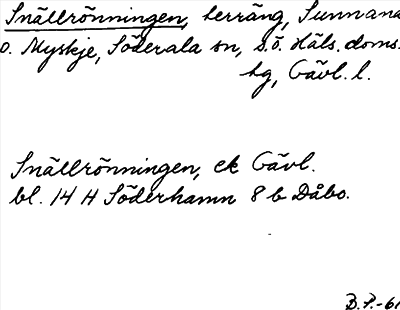 Snällrönningen, terräng, Sunnana
o. Myskje, Söderala sn, S.ö. Häls. doms.
hg, Gävl. l.
Snällrönningen, ek Gävl.
bl. 14 H Söderhamn 8 b Dåbo.
B.P.-61